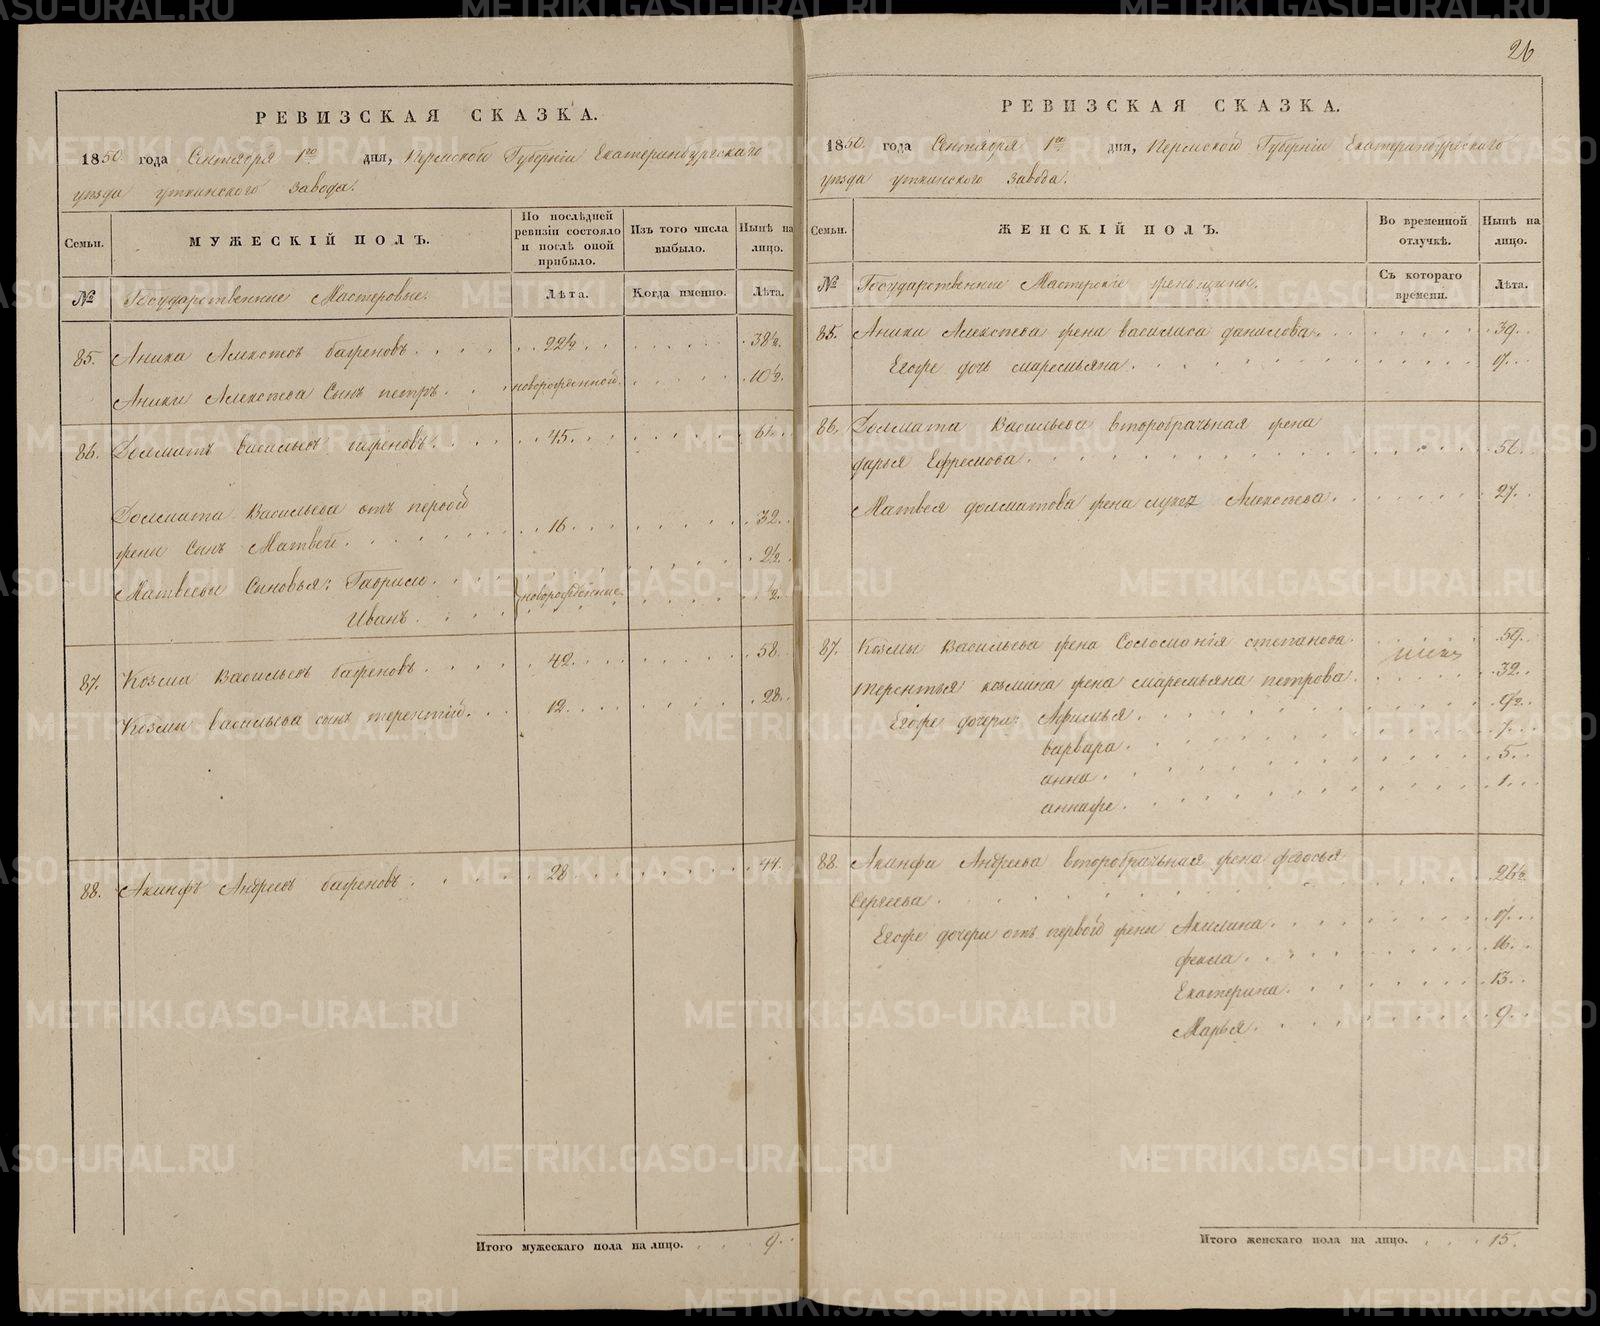 26
РЕВИЗСКАЯ СКАЗКА.
1850. года Сентября 1го дня, Пермской Губернiи Екатеринбургскаго
уѣзда уткинского завода.
Семьи.
МУЖЕСКIЙ ПОЛЪ.
По послѣдней ревизiи состояло и послѣ оной прибыло.
Изъ того числа выбыло.
Нынѣ на лицо.
№
Государственные Мастеровые.
Лѣта.
Когда именно.
Лѣта.
85. Аника Алексѣевъ баженовъ 22½ 38½
Аники Алексѣева Сынъ петръ новорожденной 10½
86. Долматъ Васильевъ баженовъ 45 61
Долмата Васильева отъ первой
жены Сынъ Матвей 16 32
Матвеевы Сыновья: Гаврило 2½
Иванъ новорожденные ½
87. Козма Васильевъ баженовъ 42 58
Козмы васильева сынъ терентiй 12 28
88. Акинфъ Андреевъ баженовъ 28 44
Итого мужескаго пола на лицо. 9
РЕВИЗСКАЯ СКАЗКА.
1850. года Сентября 1го дня, Пермской Губернiи Екатеринбургскаго
уѣзда уткинского завода.
Семьи.
ЖЕНСКIЙ ПОЛЪ.
Во временной отлучкѣ.
Нынѣ на лицо.
№
Государственные Мастерскiе женьщины.
Съ котораго времени.
Лѣта.
85. Аники Алексѣева жена василиса данилова 39
Егоже дочь маремьяна
86. Долмата Васильева второбрачная жена
дарья Ефремова 56
Матвея долматова жена Алексѣева 27
87. Козмы Васильева жена Соломонiя степанова 59
терентья козмина жена маремьяна петрова 32
Егоже дочери: Афимья
варвара
анна 5
аннаже 1
88. Акинфа Андреева второбрачная жена федосья
Сергеева 26½
Егоже дочери отъ первой жены Акилина
фекла 16
Екатерина 13
Марья 9
Итого женскаго пола на лицо. 15
METRIKI.GASO-URAL.RU